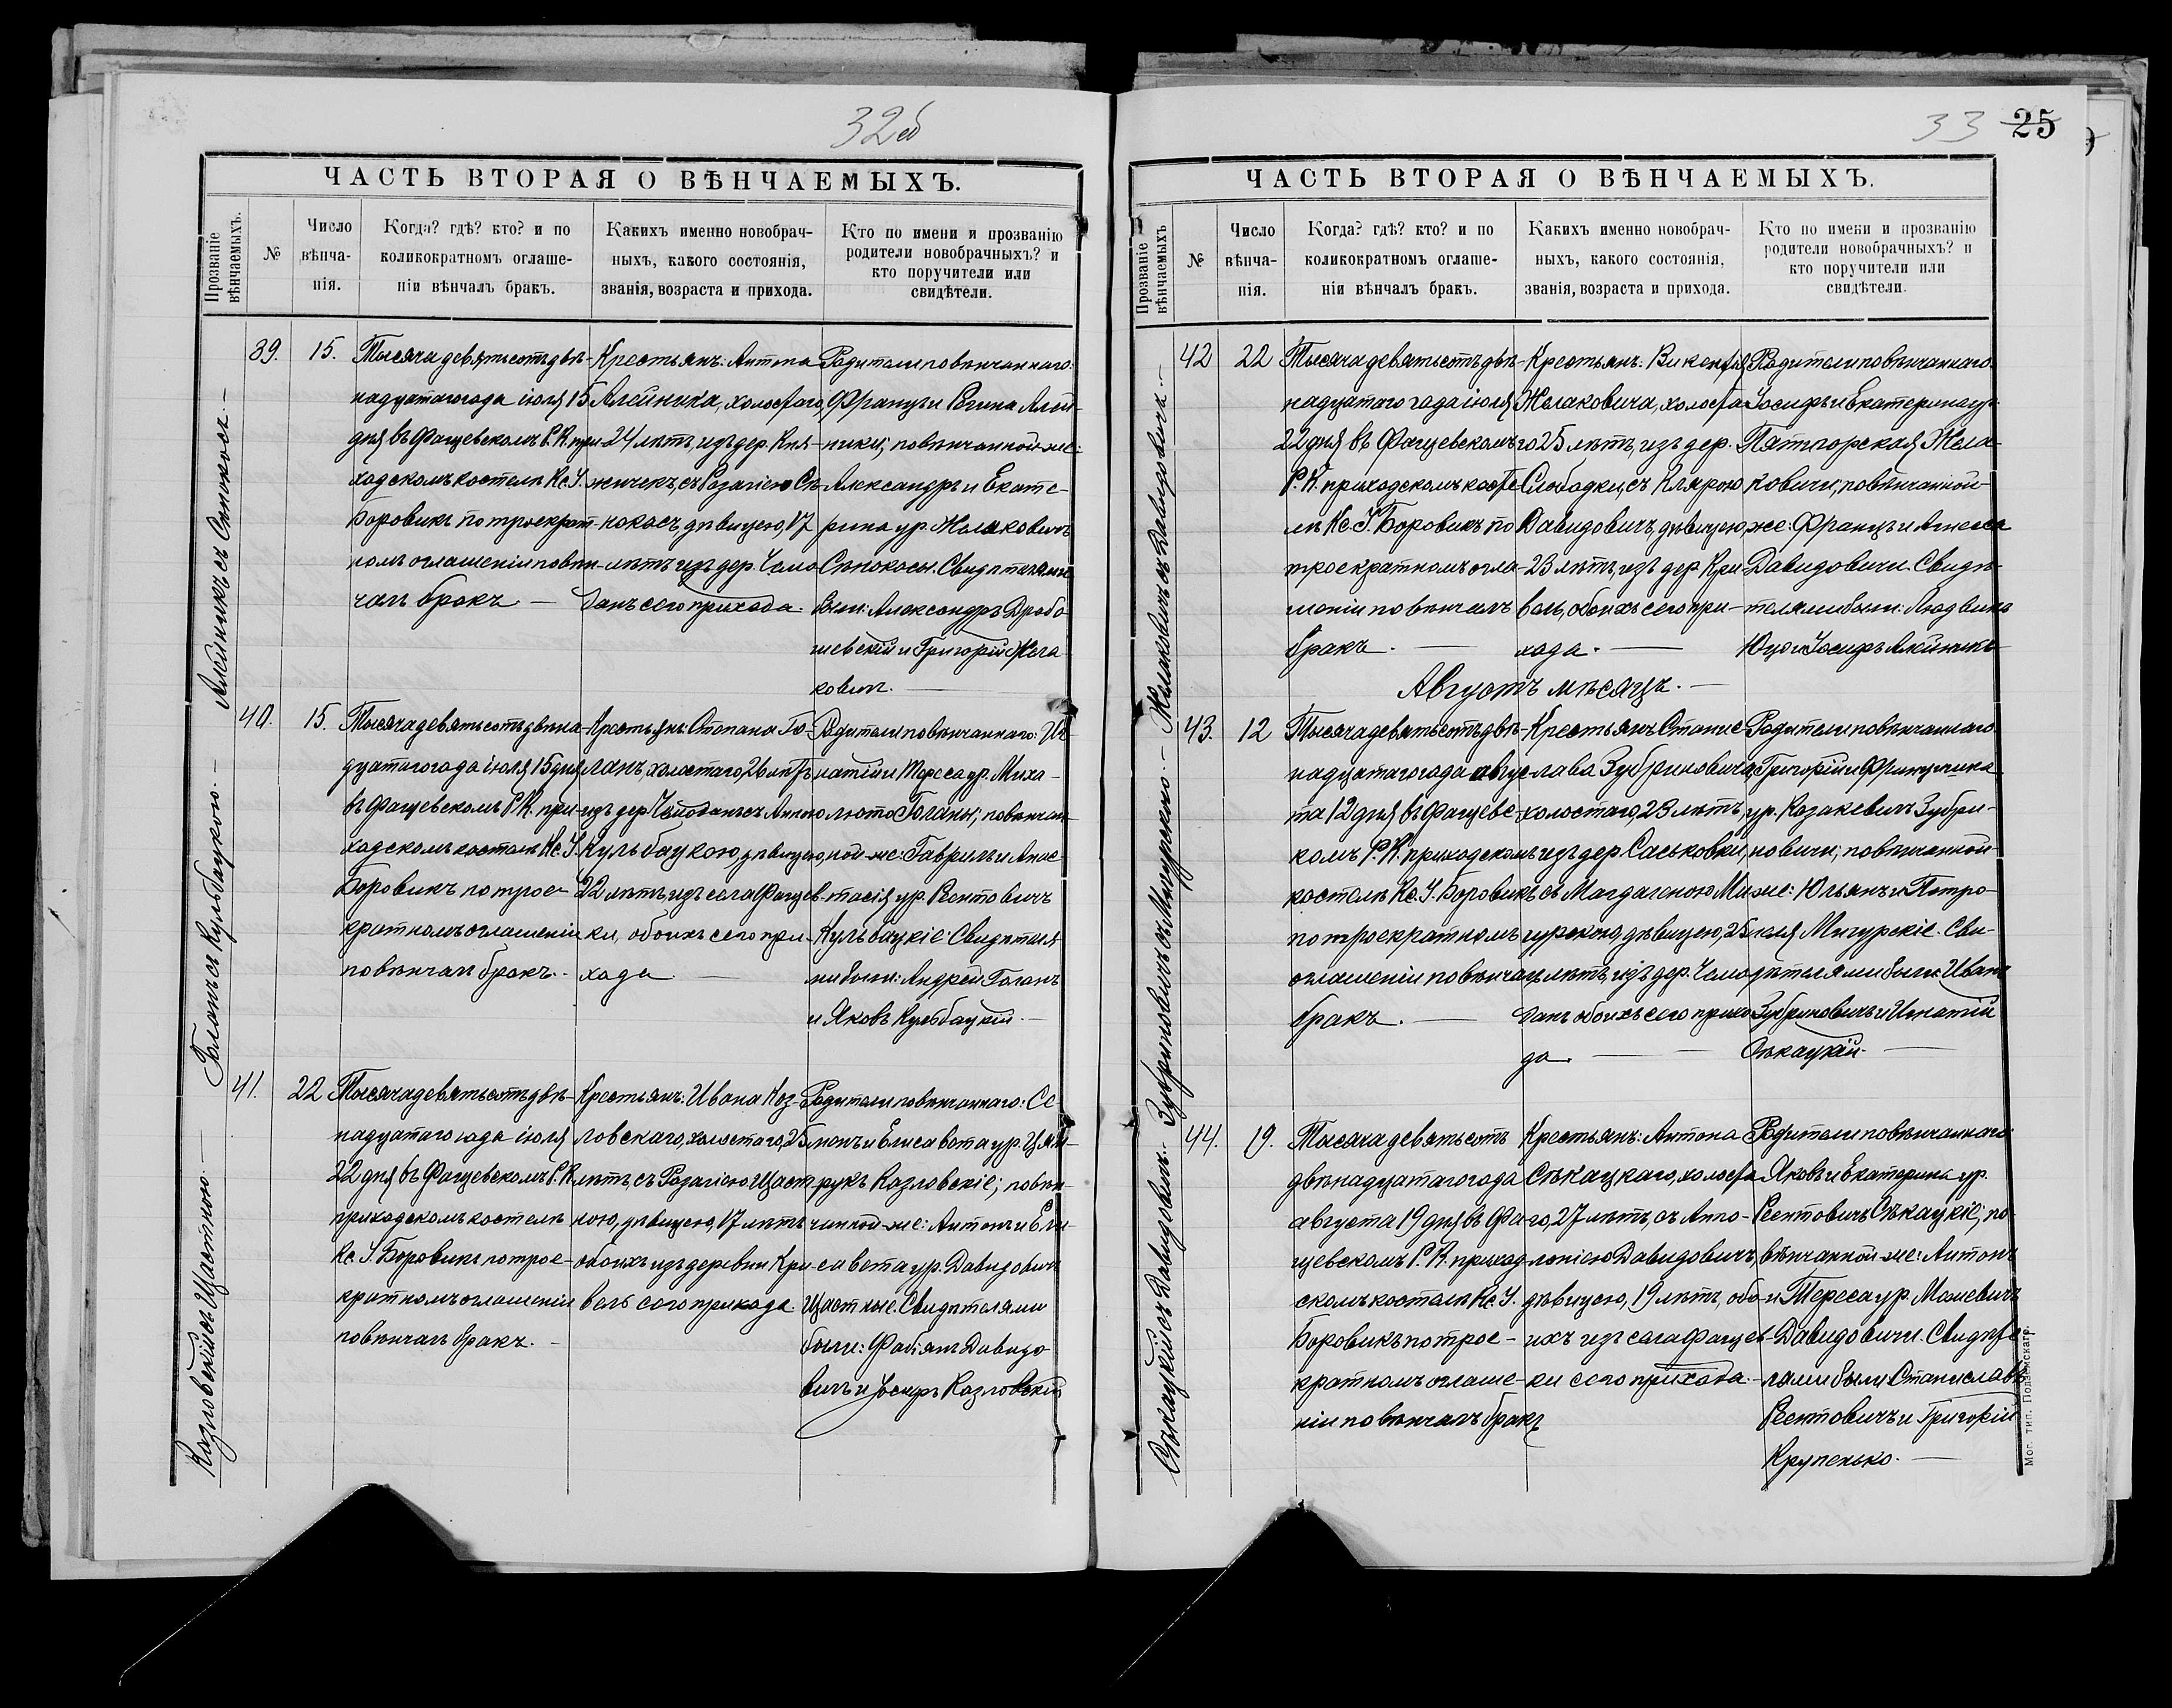 32об
ЧАСТЬ ВТОРАЯ О ВѢНЧАЕМЫХЪ.
Прозваніе вѣнчаемыхъ.
№
Число вѣнча-нія.
Когда? гдѣ? кто? и по коликократномъ оглаше-ніи вѣнчалъ бракъ.
Какихъ именно новобрач-ныхъ, какого состоянія, званія, возраста и прихода.
Кто по имени и прозванію родители новобрачныхъ? и кто поручители или свидѣтели.
Алейникъ съ Сѣнокосъ.
39.
15.
Тысяча девятьсотъ двѣ-
надцатаго года іюля 15
дня въ Фащевскомъ Р. К. при-
ходскомъ костелѣ Кс. І.
Боровикъ по троекрат-
номъ оглашеніи повѣн-
чалъ бракъ.
Крестьянъ: Антона
Алейника, холостаго,
24 лѣтъ, изъ дер. Кня-
жичекъ, съ Розаліею Сѣ-
нокосъ, дѣвицею, 17
лѣтъ изъ дер. Чемо-
данъ сего прихода.
Родители повѣнчаннаго:
Францъ и Регина Алей-
ники; повѣнчанной-же:
Александръ и Екате-
рина ур. Жолаковичъ
Сѣнокосы. Свидѣтелями
были: Александръ Дробо-
шевскій и Григорій Жела
ковичъ.
Голанъ съ Кульбацкою.
40.
15.
Тысяча девятьсотъ двѣна-
дцатаго года іюля 15 дня
въ Фащевскомъ Р. К. при-
ходскомъ костелѣ Кс. І.
Боровикъ по трое-
кратномъ оглашеніи
повѣнчалъ бракъ.
Крестьянъ: Степана Го-
ланъ, холостаго, 26 лѣтъ
изъ дер. Чемоданъ съ Анною
Кульбацкою, дѣвицею,
22 лѣтъ, изъ села Фащев-
ки, обоихъ сего при-
хода
Родители повѣнчаннаго: Иг-
натій и Тереса ур. Миха-
люто Голаны; повѣнчан-
ной-же: Гаврилъ и Анас-
тасія ур. Рентовичъ
Кульбацкіе Свидѣтеля-
ми были: Андрей Голанъ
и Яковъ Кульбацкій.
Козловскій съ Щастною.
41.
22
Тысяча девятьсотъ двѣ-
надцатаго года іюля
22 дня въ Фащевскомъ Р. К.
приходскомъ костелѣ
Кс. І. Боровикъ по трое-
кратномъ оглашеніи
повѣнчалъ бракъ.
Крестьянъ: Ивана Коз-
ловскаго, холостаго, 25
лѣтъ, съ Розаліею Щаст-
ною, дѣвицею, 17 лѣтъ
обоихъ изъ деревни Кри-
вель сего прихода.
Родители повѣнчаннаго: Се-
менъ и Елисавета ур.
Козловскіе; повѣн-
чанной-же: Антонъ и Ели-
савета ур. Давидовичъ
Щастные. Свидѣтелями
были: Фабіянъ Давидо-
вичъ и Іосифъ Козловскій
33
25
ЧАСТЬ ВТОРАЯ О ВѢНЧАЕМЫХЪ.
Прозваніе вѣнчаемыхъ
№
Число вѣнча-нія.
Когда? гдѣ? кто? и по коликократномъ оглаше-ніи вѣнчалъ бракъ.
Какихъ именно новобрач-ныхъ, какого состоянія, званія, возраста и прихода.
Кто по имени и прозванію родители новобрачныхъ? и кто поручители или свидѣтели.
Желаковичъ съ Давидовичъ.
42
22
Тысяча девятьсотъ двѣ-
надцатаго года іюля
22 дня въ Фащевскомъ
Р. К. приходскомъ косте-
лѣ Кс. І. Боровикъ по
троекратномъ огла-
шеніи повѣнчалъ
бракъ.
Крестьянъ: Викентія
Желаковича, холоста-
го 25 лѣтъ, изъ дер.
Слободки, съ Клярою
Давидовичъ, дѣвицею,
23 лѣтъ, изъ дер. Кри-
вель, обоихъ сего при-
хода.
Родители повѣнчаннаго:
Іосифъ и Екатерина ур.
Пятигорская Жела-
ковичи, повѣнчанной-
же: Францъ и Агнеса
Давидовичи. Свидѣ-
телями были: Людвикъ
Юцо и Іосифъ Алейникъ
Августъ мѣсяцъ.
Зубриновичъ съ Мигурскою.
43.
12
Тысяча девятьсотъ двѣ-
надцатаго года авгус-
та 12 дня въ Фащевс-
комъ Р. К. приходскомъ
костелѣ Кс. І. Боровикъ
по троекратномъ
оглашеніи повѣнчалъ
бракъ.
Крестьянъ Станис-
лава Зубриновича,
холостаго, 23 лѣтъ,
изъ дер. Саськовки,
съ Магдаленою Ми-
гурскою, дѣвицею, 25
лѣтъ, изъ дер. Чемо-
данъ обоихъ сего прихо-
да.
Родители повѣнчаннаго
Григорій и
ур. Казакевичъ Зубри-
новичи; повѣнчанной-
же: Юльянъ и Петро-
неля Мигурскіе. Сви-
дѣтелями были Иванъ
Зубриновичъ и Игнатій
Сѣкацкій.
Сѣкацкій съ Давидовичъ.
44.
19.
Тысяча девятьсотъ
двѣнадцатаго года
августа 19 дня въ Фа-
щевскомъ Р. К. приход-
скомъ костелѣ Кс. І.
Боровикъ по трое-
кратномъ оглаше-
ніи повѣнчалъ бракъ
Крестьянъ: Антона
Сѣкацкаго, холоста-
го, 27 лѣтъ, съ Аппо-
лоніею Давидовичъ,
дѣвицею, 19 лѣтъ, обо-
ихъ изъ села Фащев-
ки сего прихода.
Родители повѣнчаннаго:
Яковъ и Екатерина ур.
Рентовичъ Сѣкацкіе; по-
вѣнчанной-же: Антонъ
и Тереса ур.
Давидовичи. Свидѣте-
лями были Станиславъ
Рентовичъ и Григорій
Крупенько.
Мог. тип. Подземскаго.